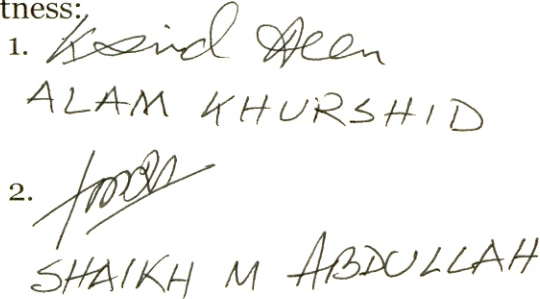 tness:
1.
ALAM KHURSHID
2.
SHAIKH M ABDULLAH